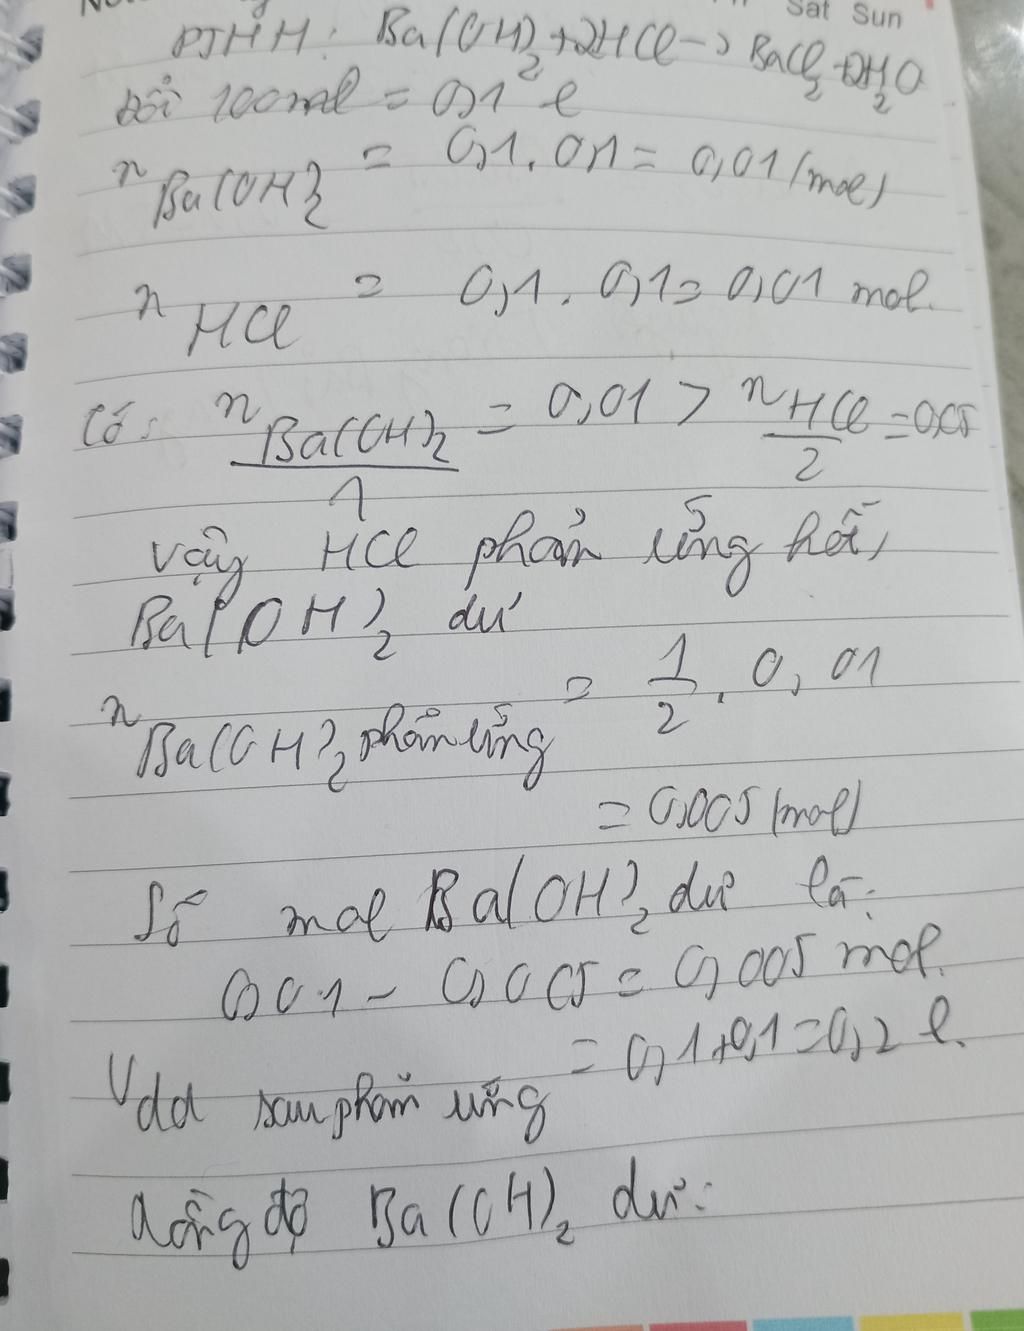 Sat Sun
PTHH: Ba(OH)2 + 2HCl -> BaCl2 + 2H2O
Đổi 100ml = 0,1 l
nBa(OH)2 = 0,1 . 0,1 = 0,01 (mol)
nHCl = 0,1 . 0,1 = 0,01 mol.
Có: nBa(OH)2/1 = 0,01 > nHCl/2 = 0,05
vậy HCl phản ứng hết,
Ba(OH)2 dư
nBa(OH)2 phản ứng = 1/2 . 0,01
= 0,005 (mol)
Số mol Ba(OH)2 dư là:
0,01 - 0,005 = 0,005 mol.
Vdd sau phản ứng = 0,1+0,1=0,2 l.
Nồng độ Ba(OH)2 dư: